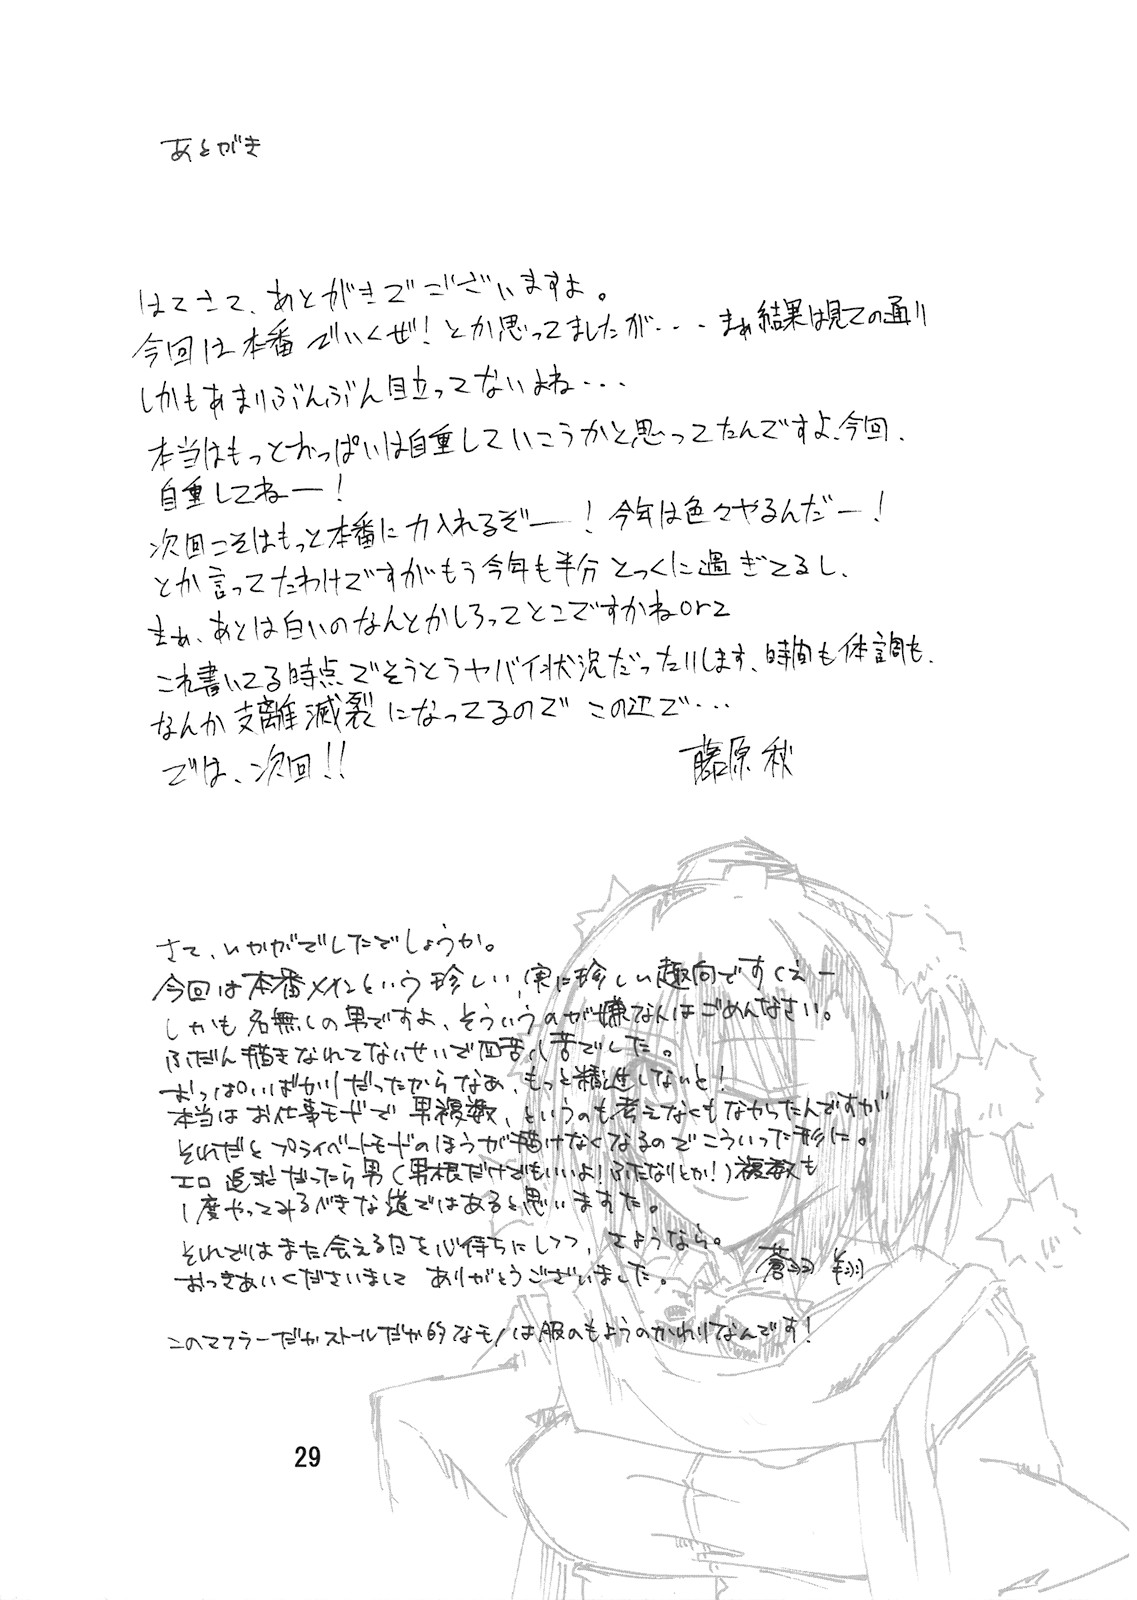 あとがき
はてさて、あとがきでございますよ。
今回は本番でいくぜ!とか思ってましたが・・・まぁ結果は見ての通り
しかもあまりぶんぶん目立ってないよね・・・
本当はもっとおっぱいは自重していこうかと思ってたんですよ、今回、
自重してねー!
次回こそはもっと本番に力入れるぞー!今年は色々やるんだー!
とか言ってたわけですがもう今年も半分とっくに過ぎてるし、
まぁ、あとは白いのなんとかしろってとこですかねorz
これ書いてる時点でそうとうヤバイ状況だったりします、時間も体調も、
なんか支離滅裂になってるのでこの辺で・・・
では、次回!!
藤原秋
さて、いかがでしたでしょうか。
今回は本番メインという珍しい、実に珍しい趣向ですくえー
しかも名無しの男ですよ、そういうのが嫌な人はごめんなさい。
ふだん描きなれてないせいで四苦八苦でした。
おっぱいばかりだったからなぁ、もっと精進しないと!
本当はお仕事モードで男複数、というのも考えなくもなかったんですが
それだとプライベートモードのほうが描けなくなるのでこういった形に。
エロ追求だったら男(男根だけでもいいよ!ふたなりとか!)複数も
1度やってみるべきな道ではあると思いますた。
それではまた会える日を心待ちにしつつ、さようなら。
おつきあいくださいまして ありがとうございました。
蒼羽翔
このマフラーだかストールだか的なモノは服のもようのかわりなんです!
29